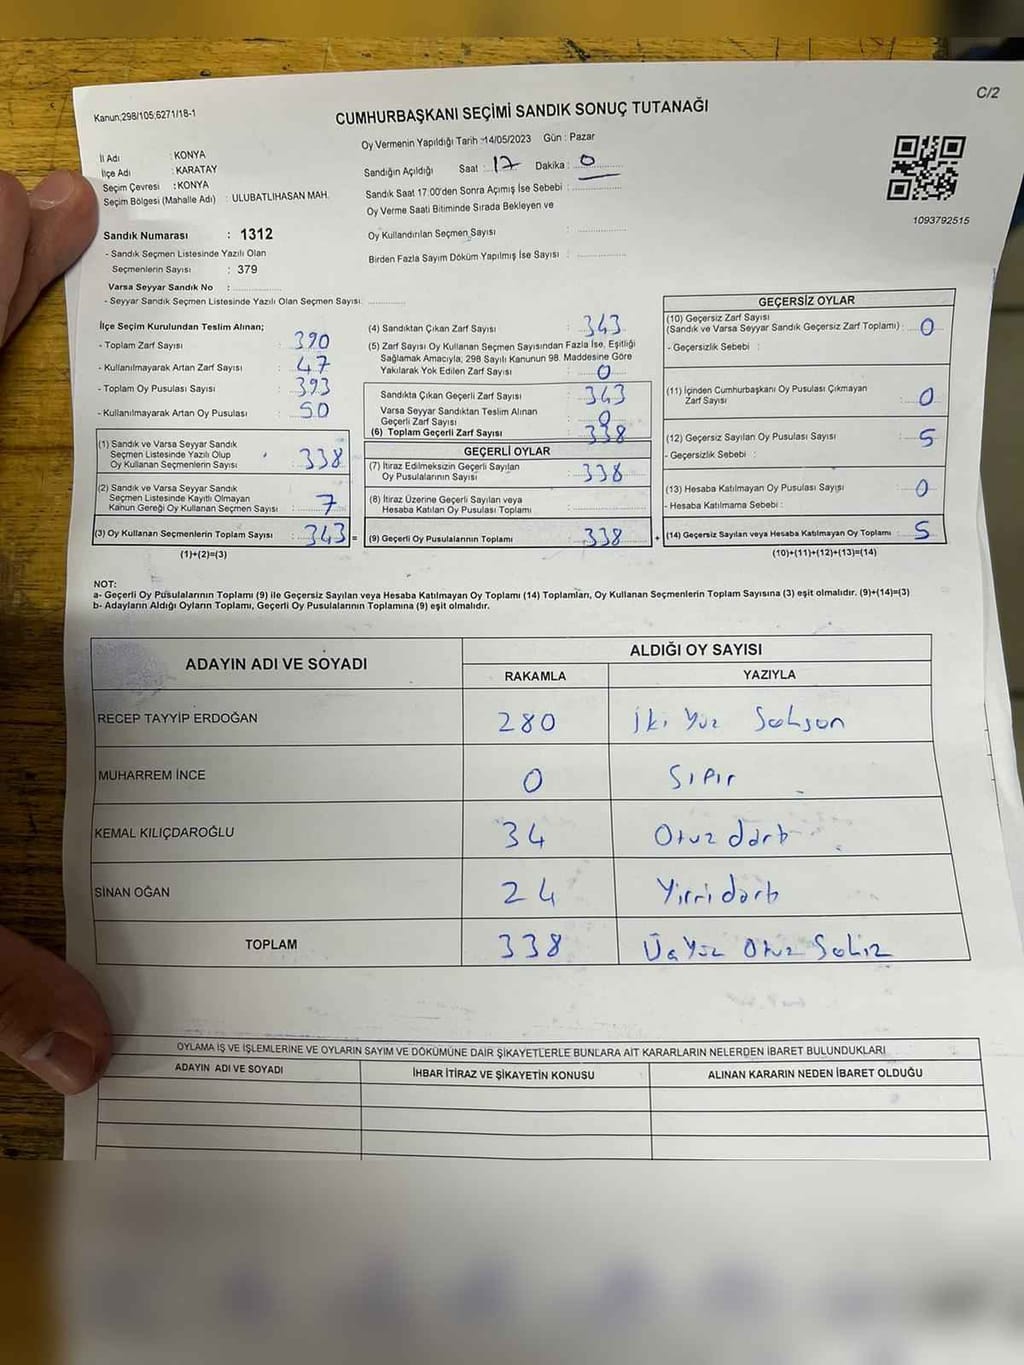 C/2
Kanun;298/105;6271/18-1
CUMHURBAŞKANI SEÇİMİ SANDIK SONUÇ TUTANAĞI
Oy Vermenin Yapıldığı Tarih :14/05/2023 Gün : Pazar
İl Adı : KONYA
İlçe Adı : KARATAY
Seçim Çevresi : KONYA
Seçim Bölgesi (Mahalle Adı) : ULUBATLIHASAN MAH.
Sandığın Açıldığı Saat : 17 Dakika : 0
Sandık Saat 17:00'den Sonra Açımış İse Sebebi :
Oy Verme Saati Bitiminde Sırada Bekleyen ve
Oy Kullandırılan Seçmen Sayısı :
Birden Fazla Sayım Döküm Yapılmış İse Sayısı :
1093792515
Sandık Numarası : 1312
- Sandık Seçmen Listesinde Yazılı Olan
Seçmenlerin Sayısı : 379
Varsa Seyyar Sandık No :
- Seyyar Sandık Seçmen Listesinde Yazılı Olan Seçmen Sayısı:
İlçe Seçim Kurulundan Teslim Alınan;
- Toplam Zarf Sayısı : 390
- Kullanılmayarak Artan Zarf Sayısı : 47
- Toplam Oy Pusulası Sayısı : 393
- Kullanılmayarak Artan Oy Pusulası : 50
(1) Sandık ve Varsa Seyyar Sandık
Seçmen Listesinde Yazılı Olup
Oy Kullanan Seçmenlerin Sayısı : 338
(2) Sandık ve Varsa Seyyar Sandık
Seçmen Listesinde Kayıtlı Olmayan
Kanun Gereği Oy Kullanan Seçmen Sayısı : 7
(3) Oy Kullanan Seçmenlerin Toplam Sayısı : 343 =
(1)+(2)=(3)
(4) Sandıktan Çıkan Zarf Sayısı : 343
(5) Zarf Sayısı Oy Kullanan Seçmen Sayısından Fazla İse, Eşitliği
Sağlamak Amacıyla; 298 Sayılı Kanunun 98. Maddesine Göre
Yakılarak Yok Edilen Zarf Sayısı : 0
Sandıkta Çıkan Geçerli Zarf Sayısı : 343
Varsa Seyyar Sandıktan Teslim Alınan
Geçerli Zarf Sayısı : 0
(6) Toplam Geçerli Zarf Sayısı : 338
GEÇERLİ OYLAR
(7) İtiraz Edilmeksizin Geçerli Sayılan
Oy Pusulalarının Sayısı : 338
(8) İtiraz Üzerine Geçerli Sayılan veya
Hesaba Katılan Oy Pusulası Toplamı :
(9) Geçerli Oy Pusulalarının Toplamı : 338 +
GEÇERSİZ OYLAR
(10) Geçersiz Zarf Sayısı
(Sandık ve Varsa Seyyar Sandık Geçersiz Zarf Toplamı) : 0
- Geçersizlik Sebebi :
(11) İçinden Cumhurbaşkanı Oy Pusulası Çıkmayan
Zarf Sayısı : 0
(12) Geçersiz Sayılan Oy Pusulası Sayısı : 5
- Geçersizlik Sebebi :
(13) Hesaba Katılmayan Oy Pusulası Sayısı : 0
- Hesaba Katılmama Sebebi :
(14) Geçersiz Sayılan veya Hesaba Katılmayan Oy Toplamı : 5
(10)+(11)+(12)+(13)=(14)
NOT:
a- Geçerli Oy Pusulalarının Toplamı (9) ile Geçersiz Sayılan veya Hesaba Katılmayan Oy Toplamı (14) Toplamları, Oy Kullanan Seçmenlerin Toplam Sayısına (3) eşit olmalıdır. (9)+(14)=(3)
b- Adayların Aldığı Oyların Toplamı, Geçerli Oy Pusulalarının Toplamına (9) eşit olmalıdır.
ADAYIN ADI VE SOYADI ALDIĞI OY SAYISI
RAKAMLA YAZIYLA
RECEP TAYYİP ERDOĞAN 280 İki Yüz Sekson
MUHARREM İNCE 0 Sıfır
KEMAL KILIÇDAROĞLU 34 Otuz dört
SİNAN OĞAN 24 Yirmi dört
TOPLAM 338 Üç Yüz Otuz Sekiz
OYLAMA İŞ VE İŞLEMLERİNE VE OYLARIN SAYIM VE DÖKÜMÜNE DAİR ŞİKAYETLERLE BUNLARA AİT KARARLARIN NELERDEN İBARET BULUNDUKLARI
ADAYIN ADI VE SOYADI İHBAR İTİRAZ VE ŞİKAYETİN KONUSU ALINAN KARARIN NEDEN İBARET OLDUĞU